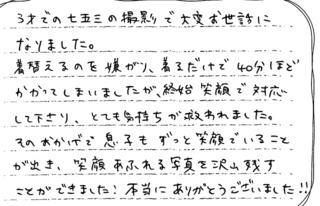 3才での七五三の撮影で大変お世話に
なりました。
着替えるのを嫌がり、着るだけで40分ほど
かかってしまいましたが、終始笑顔で対応
して下さり、とても気持ちが救われました。
そのおかげで息子もずっと笑顔でいること
が出き、笑顔あふれる写真を沢山残す
ことができました！本当にありがとうございました!!